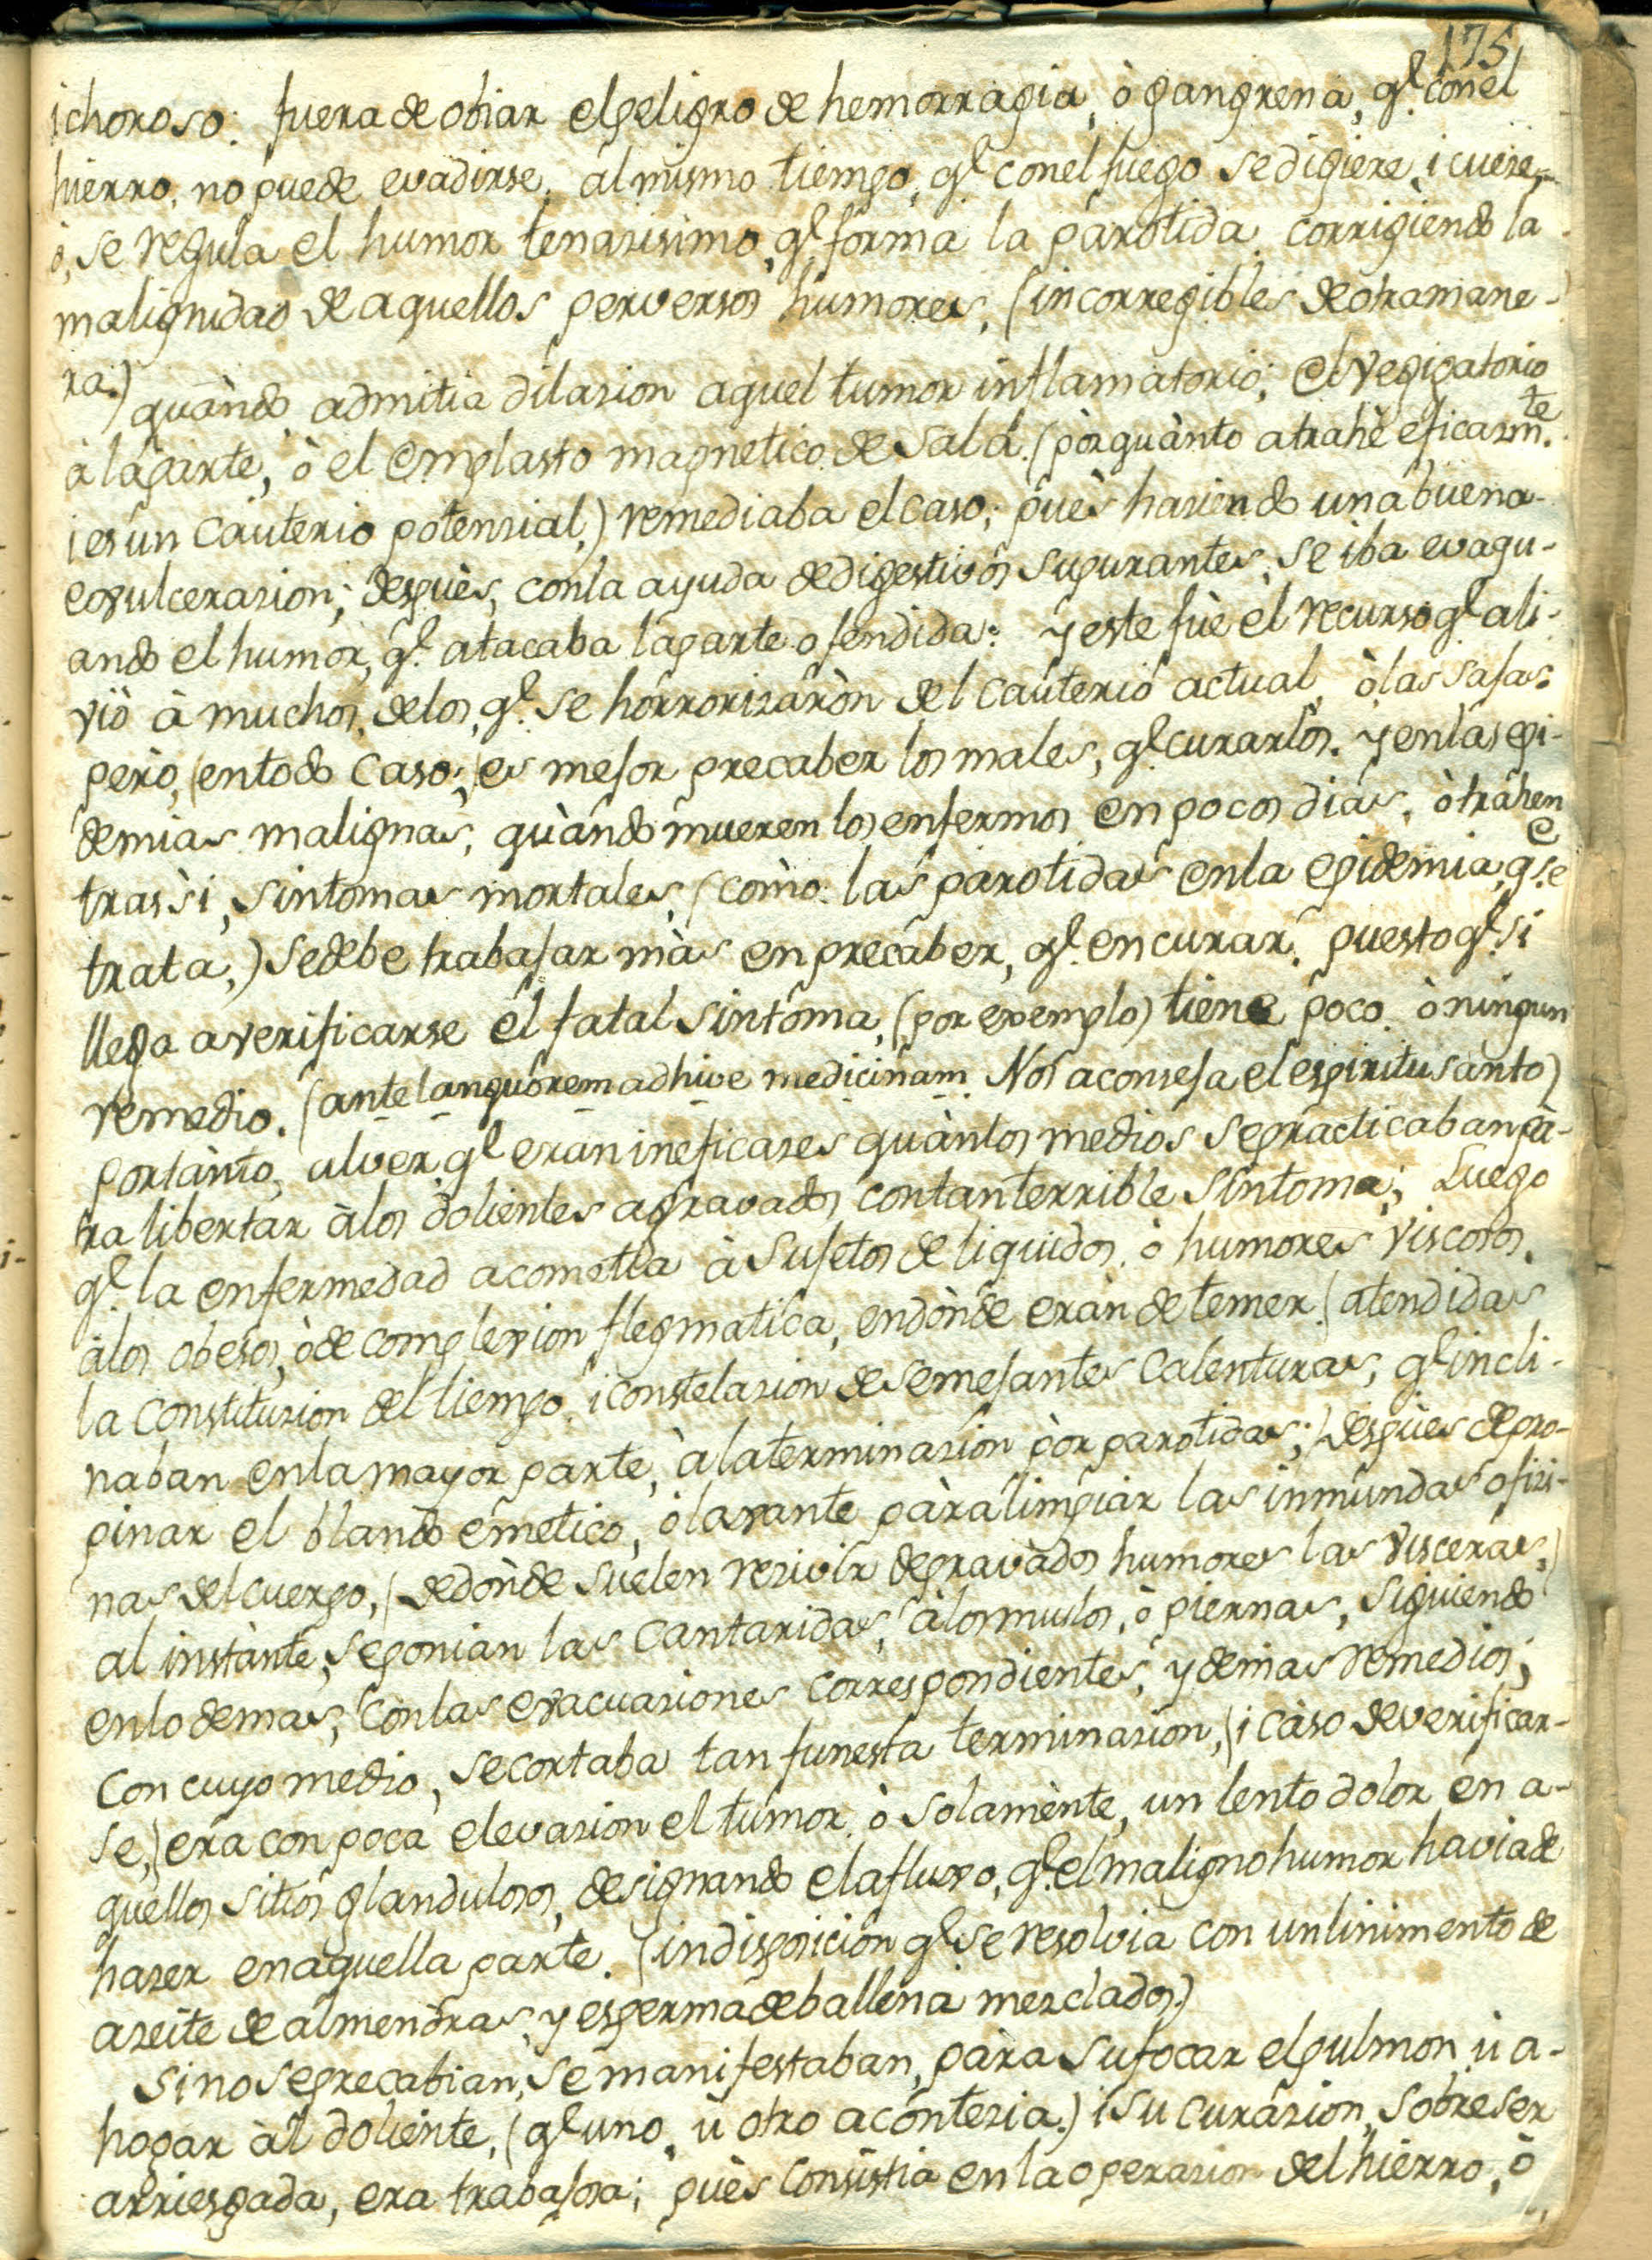 175
ichoroso: fuera de obiar el peligro de hemorragia, ò gangrena, q.^l con el
hierro, no puede evadirse, al mismo tiempo, q.^l con el fuego se digiere, i cueze,
ò, se regula el humor tenazisimo, q.^l forma la parotida, corrigiendo la
malignidad de aquellos perversos humores, (incorregibles de otra mane-
ra:) quàndo, admitia dilazion aquel tumor inflamatorio; el vegigatorio
à la parte, ò el emplasto magnetico de Sala. (pòr quànto atrahè eficazm.^te
i es un cauterio potenzial,) remediaba el caso; puès haziendo una buena
exulcerazion; despuès, con la ayuda de digestivos supurantes, se iba evaqu-
ando el humor, q.^l atacaba la parte ofendida: y este fuè el recurso q.^l ali-
viò à muchos, de los, q.^l se horrorizaròn del cauterio actual, ò las sajas:
però, (en todo caso;) es mejor precaber los males, q.^l curarlos. y en las epi-
demias malignas, quàndo mueren los enfermos en pocos dias, ò trahen
tras sì, sintomas mortales, (còmo: las parotidas en la epidemia, q.^e se
trata,) se debe trabajar màs en precaber, q.^l en curar. puesto q.^l si
llega a verificarse el fatal sintoma, (por exemplo) tiene poco, ò ningun
remedio. (ante languorem adhive medicinam. Nos aconseja el espiritu santo)
portànto, al ver, q.^l eran ineficazes quàntos medios se practicaban pà-
ra libertar à los dolientes agravados con tan terrible sintoma; Luego
q.^l la enfermedad acometia à sujetos de liquidos, ò humores viscosos,
à los obesos, ò de complexion flegmatica, en dònde eràn de temer (atendidas
la constituzion del tiempo, i constelazion de semejantes calenturas, q.^l incli-
naban en la mayor parte, à la terminazion pòr parotidas;) despues de pro-
pinar el blando emetico, ò laxante pàra limpiar las inmundas ofizi-
nas del cuerpo, (de dònde suelen rezivir depravàdos humores las visceras,)
al instànte, se ponian las cantaridas, à los muslos, ò piernas, siguiendo
en lo demas, con las evacuaziones correspondientes, y demas remedios;
con cuyo medio, se cortaba tan funesta terminazion, (i càso de verificar-
se,) era con poca elevazion el tumor, ò solamènte, un lento dolor en a-
quellos sitios glandulosos, designando el afluxo, q.^l el maligno humor havia de
hazer en aquella parte. (indisposicion q.^l se resolvia con un linimento de
azeite de almendras, y esperma de ballena mezclados.)
Si no se precabian, se manifestaban, pàra sufocar el pulmon, ù a-
hogar àl doliente, (q.^l uno, ù otro acontezia.) i su curàzion, sobre ser
arriesgada, era trabajosa; puès consistia en la operazion del hierro, ò